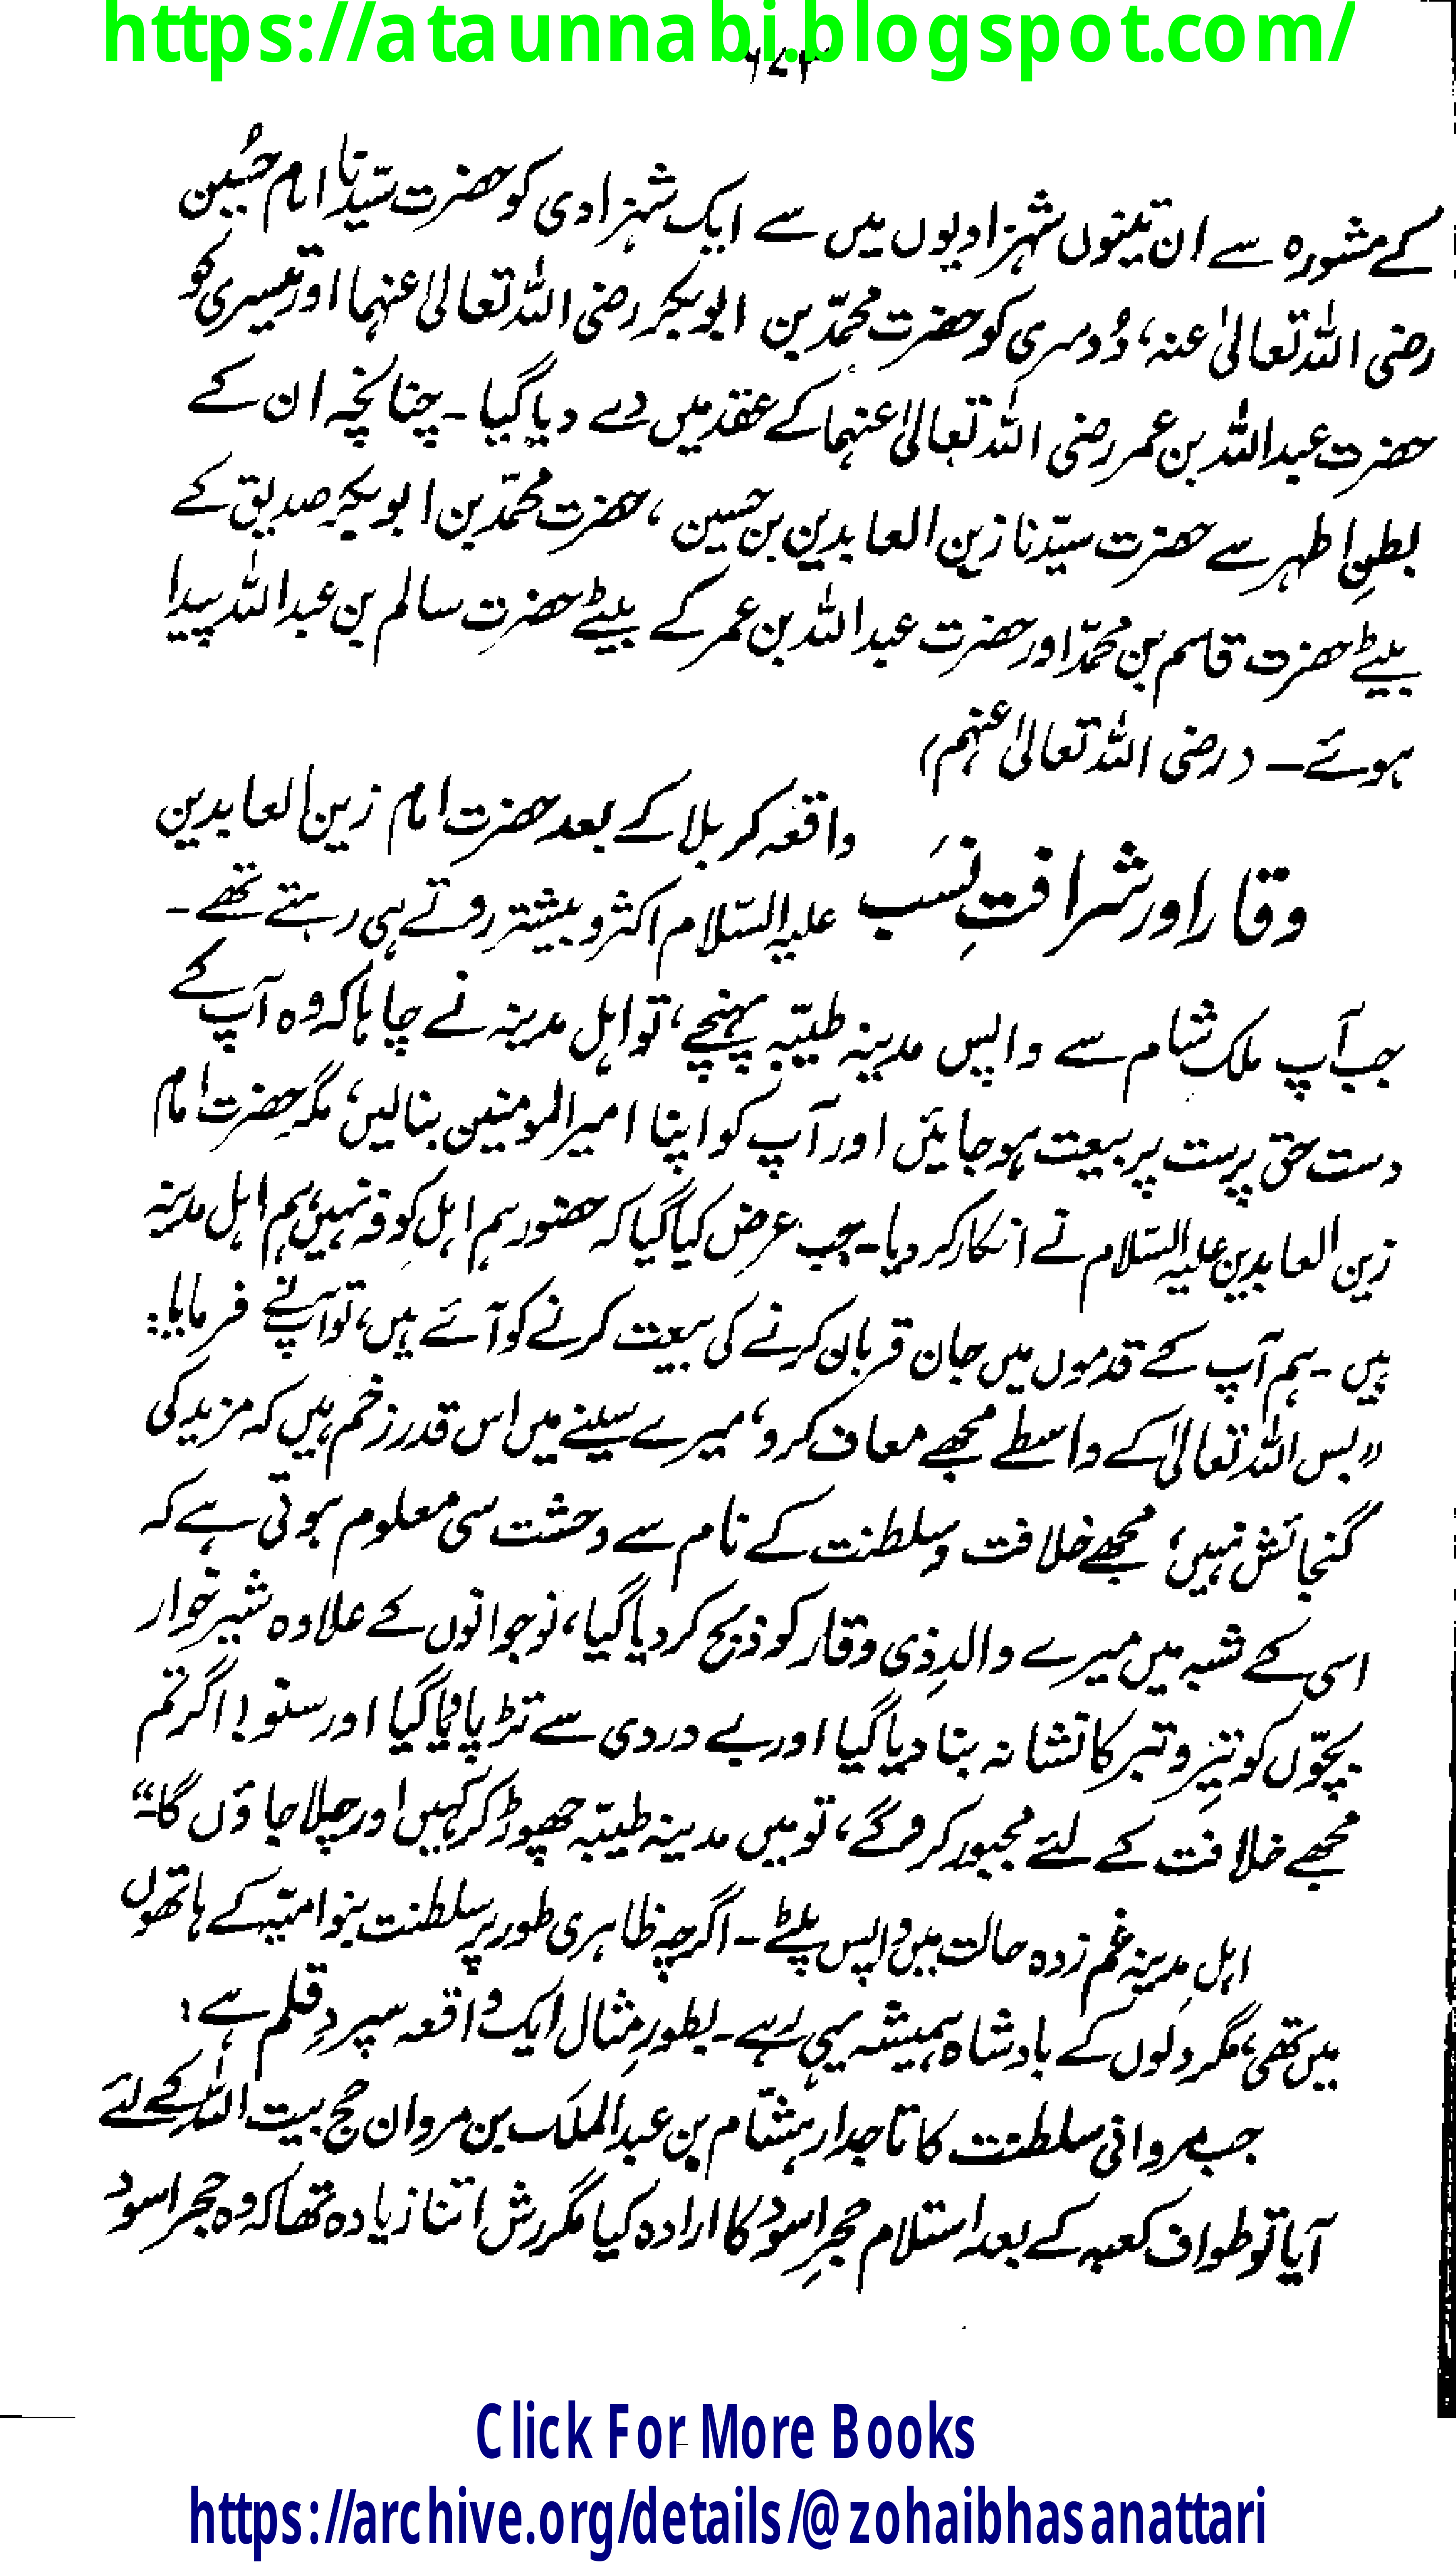 https://ataunnabi.blogspot.com/
۶۷۲
کے مشورہ سے ان تینوں شہزادیوں میں سے ایک شہزادی کو حضرت سیّدنا امام حسُین
رضی اللہ تعالیٰ عنہ، دُوسری کو حضرت محمّد بن ابوبکر رضی اللہ تعالیٰ عنہما اور تیسری کو
حضرت عبداللہ بن عمر رضی اللہ تعالیٰ عنہما کے عقد میں دے دیا گیا۔ چنانچہ ان کے
بطنِ اطہر سے حضرت سیّدنا زین العابدین بن حسین، حضرت محمّد بن ابوبکر صدیق کے
بیٹے حضرت قاسم بن محمّد اور حضرت عبداللہ بن عمر کے بیٹے حضرتِ سالم بن عبداللہ پیدا
ہوئے۔ (رضی اللہ تعالیٰ عنہم)
وقار اور شرافتِ نسَب واقعہ کربلا کے بعد حضرت امام زین العابدین
علیہ السّلام اکثر و بیشتر روتے ہی رہتے تھے۔
جب آپ ملک شام سے واپس مدینہ طیبّہ پہنچے، تو اہل مدینہ نے چاہا کہ وہ آپ کے
دست حق پرست پر بیعت ہو جائیں اور آپ کو اپنا امیرالمومنین بنالیں، مگر حضرت امام
زین العابدین علیہ السّلام نے انکار کر دیا۔ جب عرض کیا گیا کہ حضور ہم اہلِ کوفہ نہیں، ہم اہل مدینہ
ہیں۔ ہم آپ کے قدموں میں جان قربان کرنے کی بیعت کرنے کو آئے ہیں، تو آپنے فرمایا:
"بس اللہ تعالیٰ کے واسطے مجھے معاف کرو، میرے سینے میں اس قدر زخم ہیں کہ مزید کی
گنجائش نہیں، مجھے خلافت و سلطنت کے نام سے وحشت سی معلوم ہوتی ہے کہ
اسی کے شبہ میں میرے والدِ ذی وقار کو ذبح کر دیا گیا، نوجوانوں کے علاوہ شیر خوار
بچّوں کو تیر و تبر کا نشانہ بنا دیا گیا اور بے دردی سے تڑپایا گیا اور سنو! اگر تم
مجھے خلافت کے لئے مجبور کرو گے، تو میں مدینہ طیبّہ چھوڑ کر کہیں اور چلا جاؤں گا۔"
اہلِ مدینہ غم زدہ حالت میں واپس پلٹے۔ اگرچہ ظاہری طور پر سلطنت بنو امیّہ کے ہاتھوں
میں تھی، مگر دلوں کے بادشاہ ہمیشہ یہی رہے۔ بطورِ مثال ایک واقعہ سپردِ قلم ہے:
جب مروانی سلطنت کا تاجدار ہشّام بن عبدالملک بن مروان حج بیت اللہ کے لئے
آیا تو طواف کعبہ کے بعد استلام حجرِ اسود کا ارادہ کیا مگر رش اتنا زیادہ تھا کہ وہ حجر اسود
Click For More Books
https://archive.org/details/@zohaibhasanattari